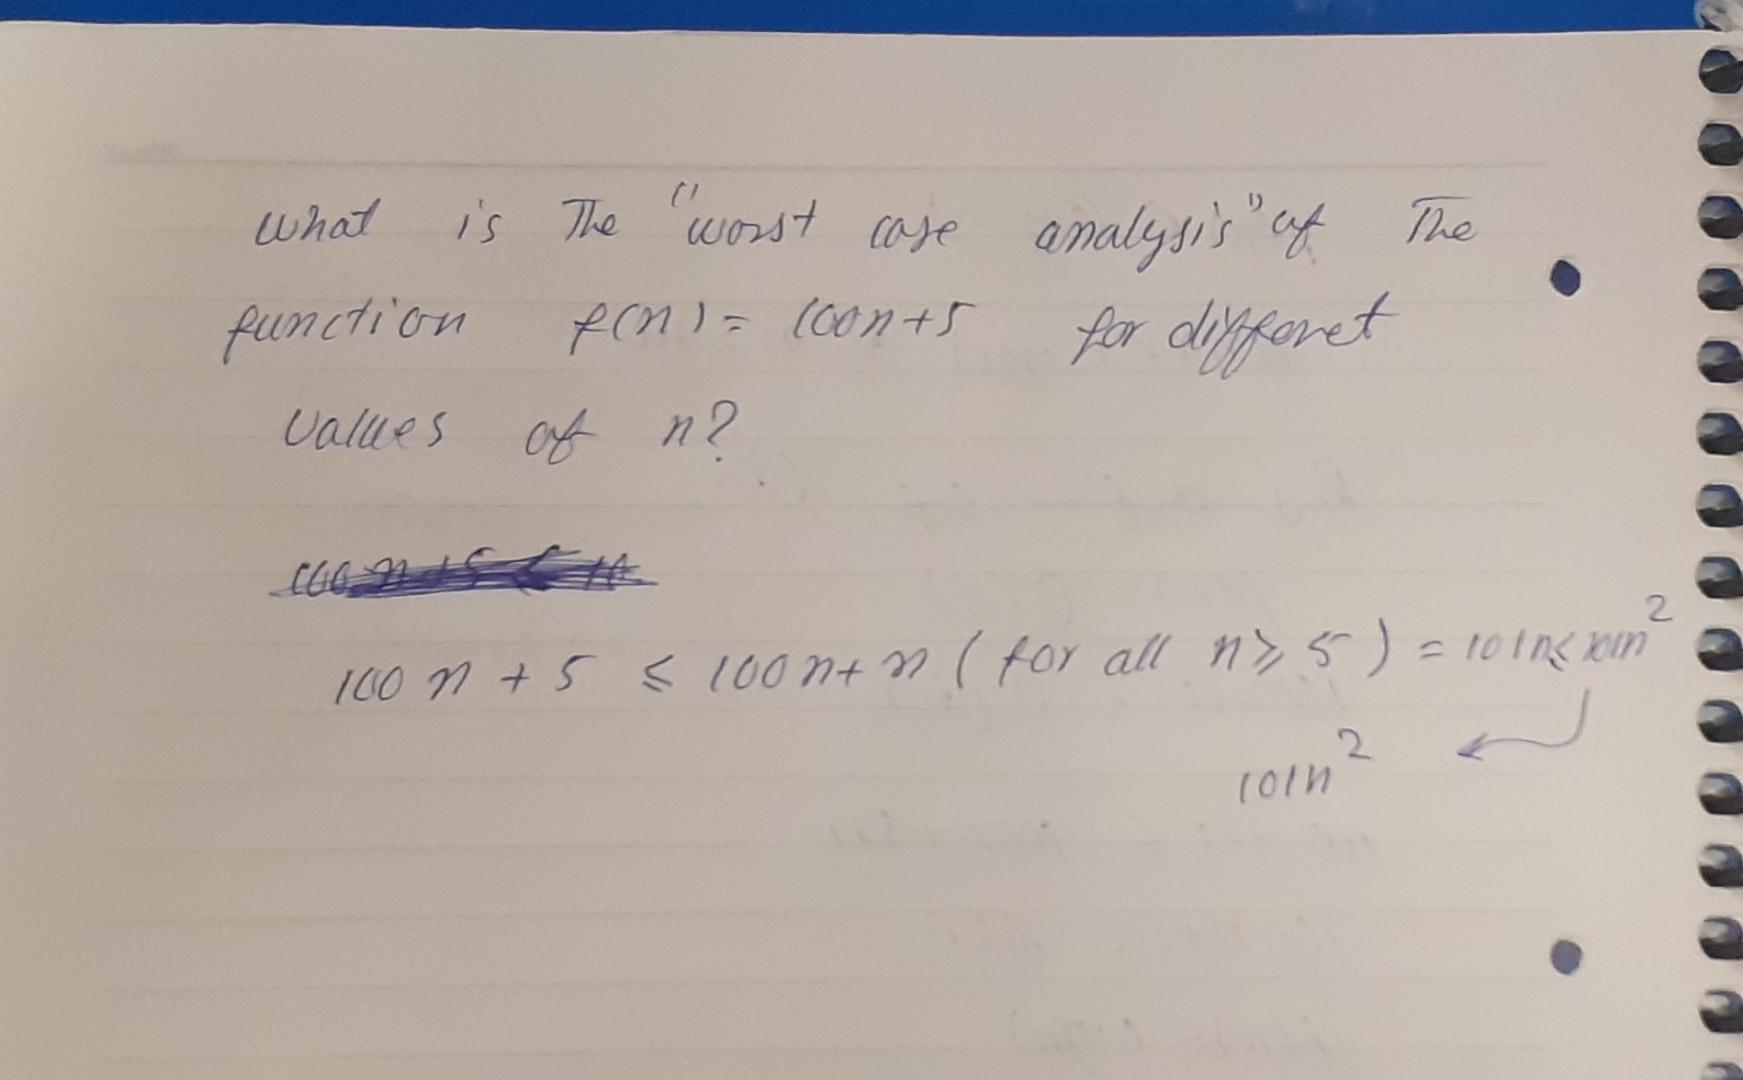 what is The "worst case analysis" of The
function f(n) = 100n+5 for differet
values of n?
100n + 5 ≤ 100n + n ( for all n ≥ 5 ) = 101n ≤ 101n²
101n²